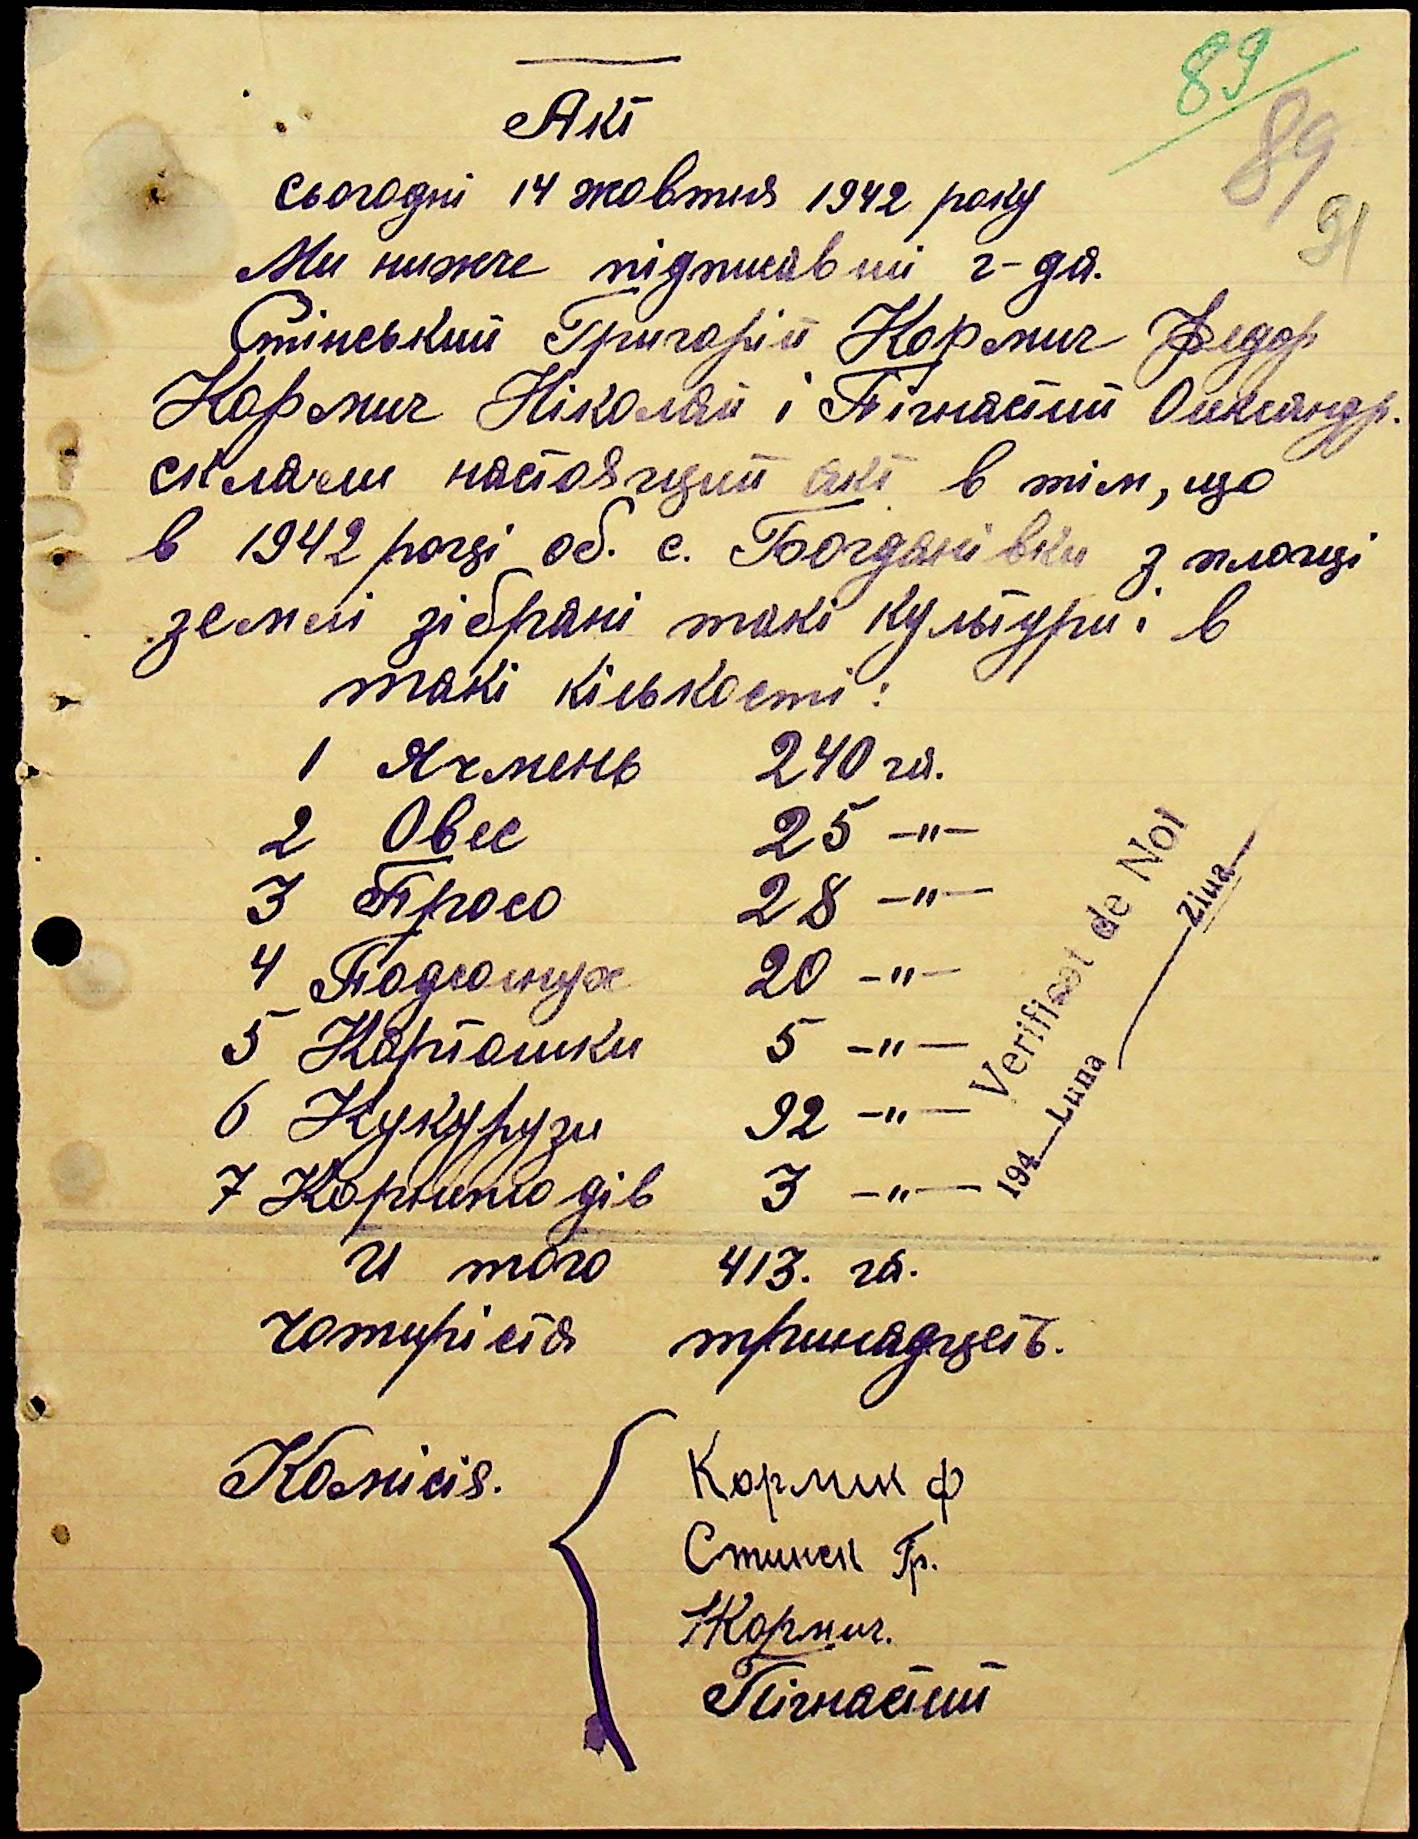 89
89
91
Акт
сьогодні 14 жовтня 1942 року
Ми нижче підписавші г-да.
Стінський Григорій Кормич Федор
Кормич Ніколай і Пігнастий Олександр.
склали настоящий акт в тім, що
в 1942 році об. с. Богданівки з площі
землі зібрані такі культури і в
такі кількості:
1 Ячмень 240 га.
2 Овес 25 -"-
3 Просо 28 -"-
4 Подсолнух 20 -"-
5 Картошки 5 -"-
6 Кукурузи 92 -"-
7 Корнеплодів 3 -"-
И того 413. га.
чотиріста тринадцеть.
Verificat de Noi
194__ Luna ____ Ziua__
Комісія.
Кормич Ф
Стинск Гр.
НКормич.
Пігнастий